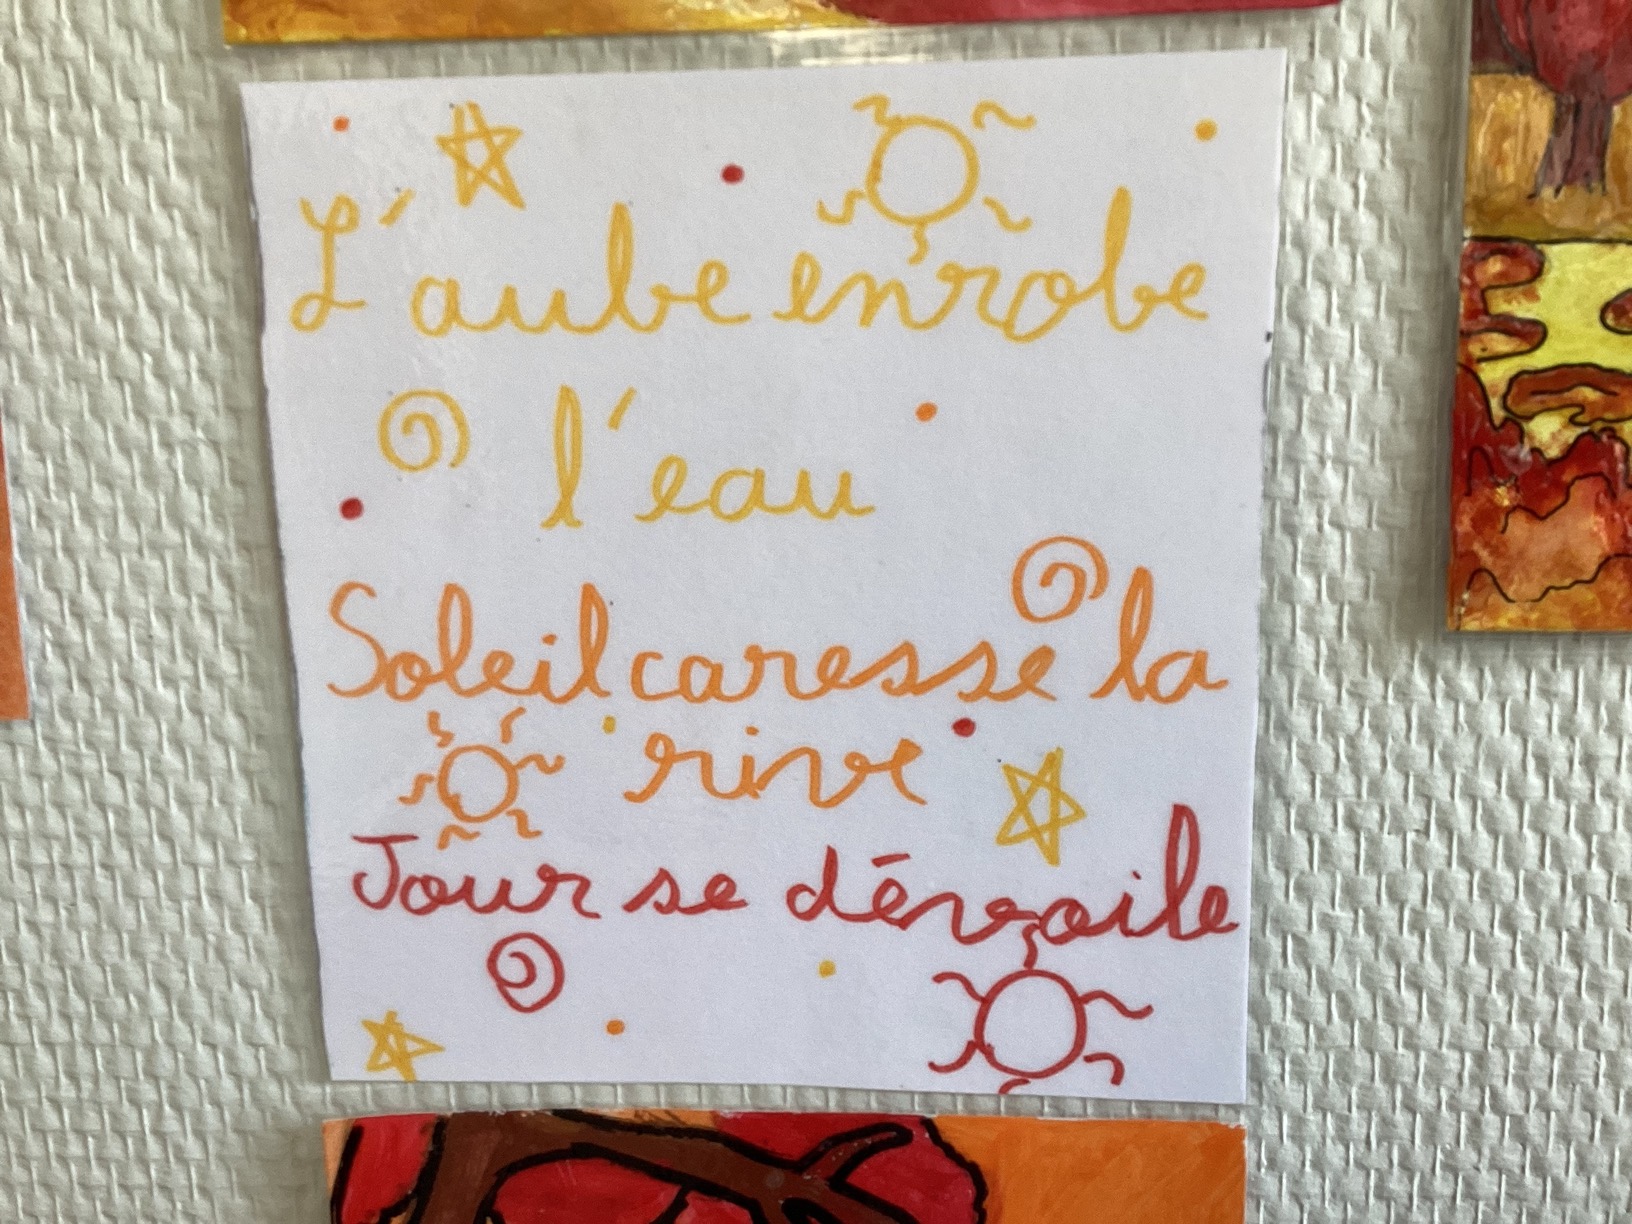 L'aube enrobe
l'eau
Soleil caresse la
rive
Jour se dévoile